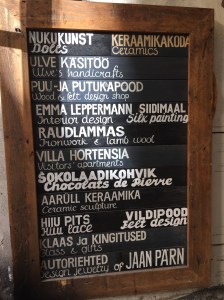 NUKUKUNST KERAAMIKAKODA
Dolls Ceramics
ULVE KÄSITÖÖ
Ulve's handicrafts
PUU-JA PUTUKAPOOD
Wood & felt design shop
EMMA LEPPERMANN SIIDIMAAL
Interior design Silk painting
RAUDLAMMAS
Ironwork & lamb wool
VILLA HORTENSIA
Visitors' apartments
ŠOKOLAADIKOHVIK
Chocolats de Pierre
AARÜLL KERAAMIKA
Ceramic sculpture
HIIU PITS VILDIPOOD
Hiiu lace Felt design
KLAAS ja KINGITUSED
Glass & gifts
AUTORIEHTED
Design jewelry of JAAN PÄRN